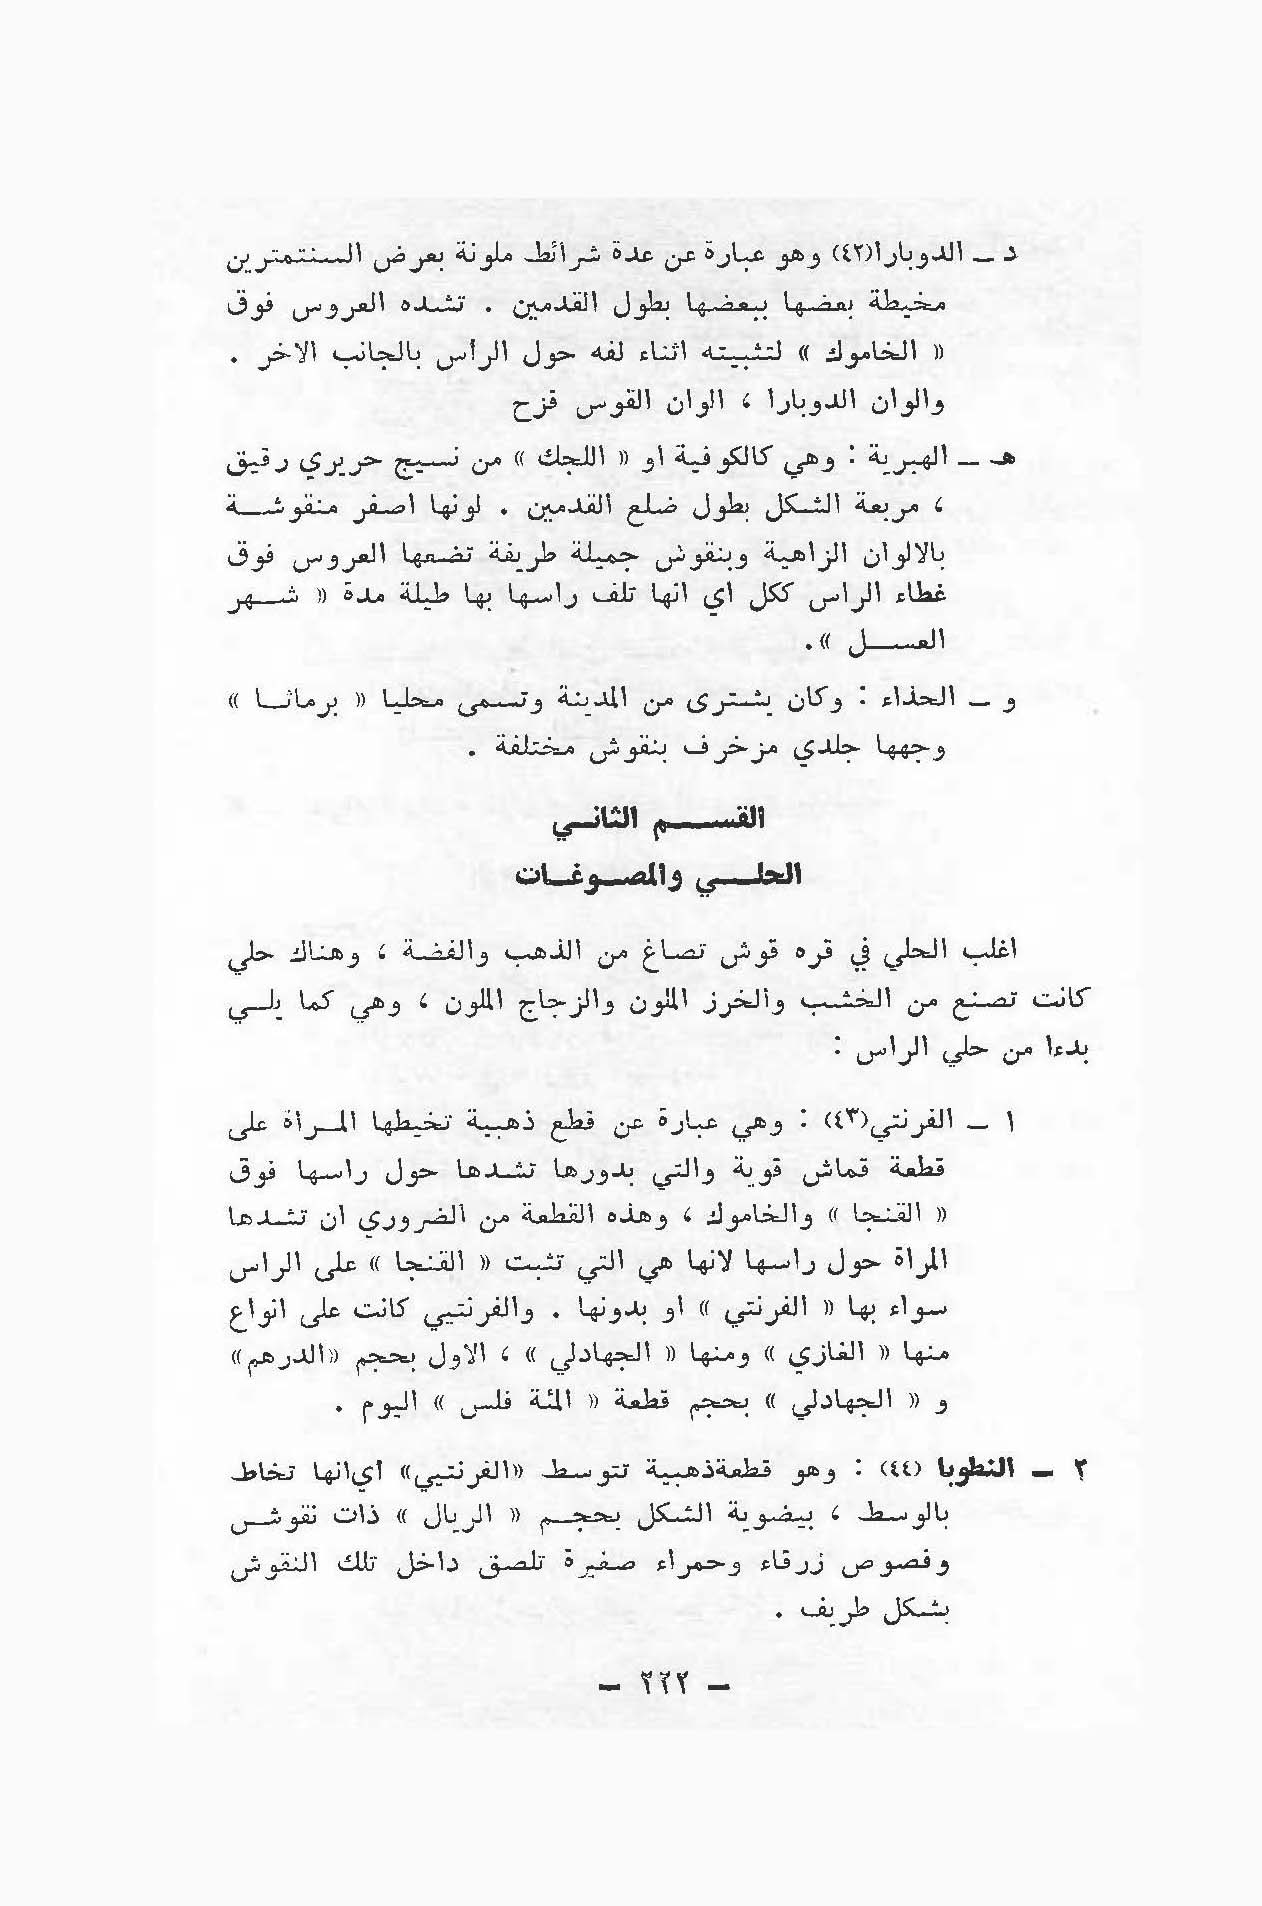 د ــ الدوبارا(٤٢) وهو عبارة عن عدة شرائط ملونة بعرض السنتمترين
مخيطة بعضها ببعضها بطول القدمين . تشده العروس فوق
« الخاموك » لتثبيته اثناء لفه حول الرأس بالجانب الاخر .
والوان الدوبارا ، الوان القوس قزح
هـ ــ الهبرية : وهي كالكوفية او « اللجك » من نسيج حريري رقيق
، مربعة الشكل بطول ضلع القدمين . لونها اصفر منقوشة
بالالوان الزاهية وبنقوش جميلة طريفة تضعها العروس فوق
غطاء الراس ككل اي انها تلف راسها بها طيلة مدة « شهر
العسل ».
و ــ الحذاء : وكان يشترى من المدينة وتسمى محليا « برمانا »
وجهها جلدي مزخرف بنقوش مختلفة .
القسم الثاني
الحلي والمصوغات
اغلب الحلي في قره قوش تصاغ من الذهب والفضة ، وهناك حلي
كانت تصنع من الخشب والخرز الملون والزجاج الملون ، وهي كما يلي
بدءا من حلي الراس :
١ ــ الفرنتي(٤٣) : وهي عبارة عن قطع ذهبية تخيطها المراة على
قطعة قماش قوية والتي بدورها تشدها حول راسها فوق
« القنجا » والخاموك ، وهذه القطعة من الضروري ان تشدها
المراة حول راسها لانها هي التي تثبت « القنجا » على الراس
سواء بها « الفرنتي » او بدونها . والفرنتيي كانت على انواع
منها « الغازي » ومنها « الجهادلي » ، الاول بحجم «الدرهم»
و « الجهادلي » بحجم قطعة « المئة فلس » اليوم .
٢ ــ النطوبا (٤٤) : وهو قطعةذهبية تتوسط «الفرنتيي» ايانها تخاط
بالوسط ، بيضوية الشكل بحجم « الريال » ذات نقوش
وفصوص زرقاء وحمراء صغيرة تلصق داخل تلك النقوش
بشكل طريف .
ــ ٢٦٢ ــ